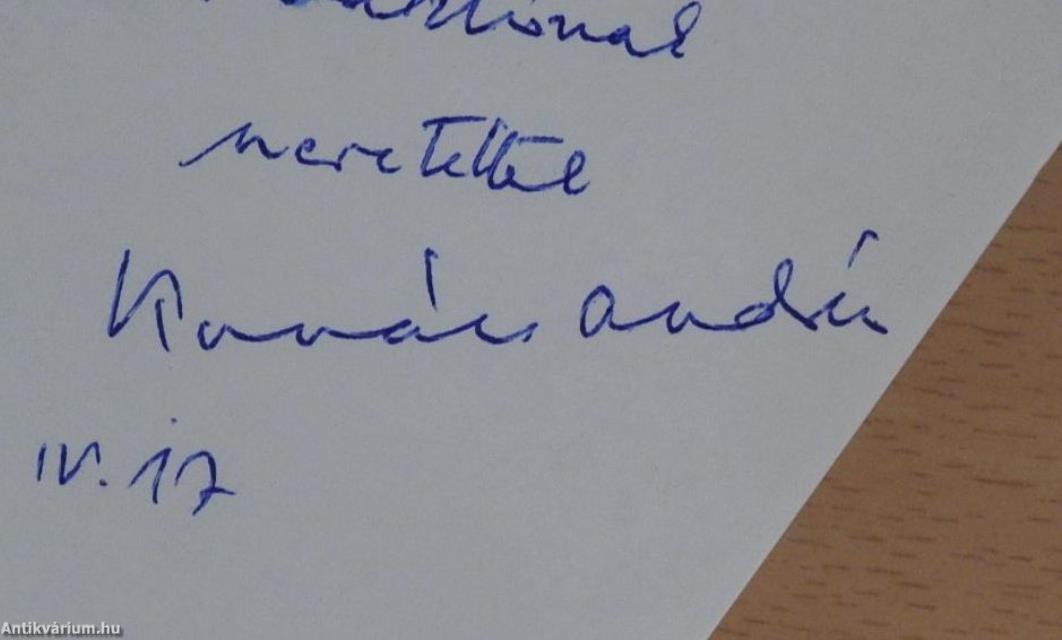 szeretettel
Kovács András
IV. 17
Antikvárium.hu